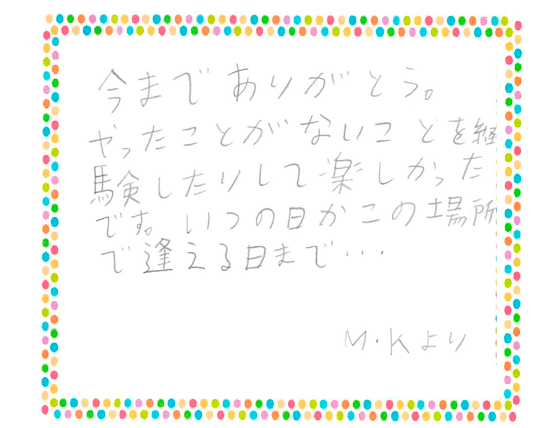 今までありがとう。
やったことがないことを経
験したりして楽しかった
です。いつの日かこの場所
で逢える日まで・・・
M・Kより